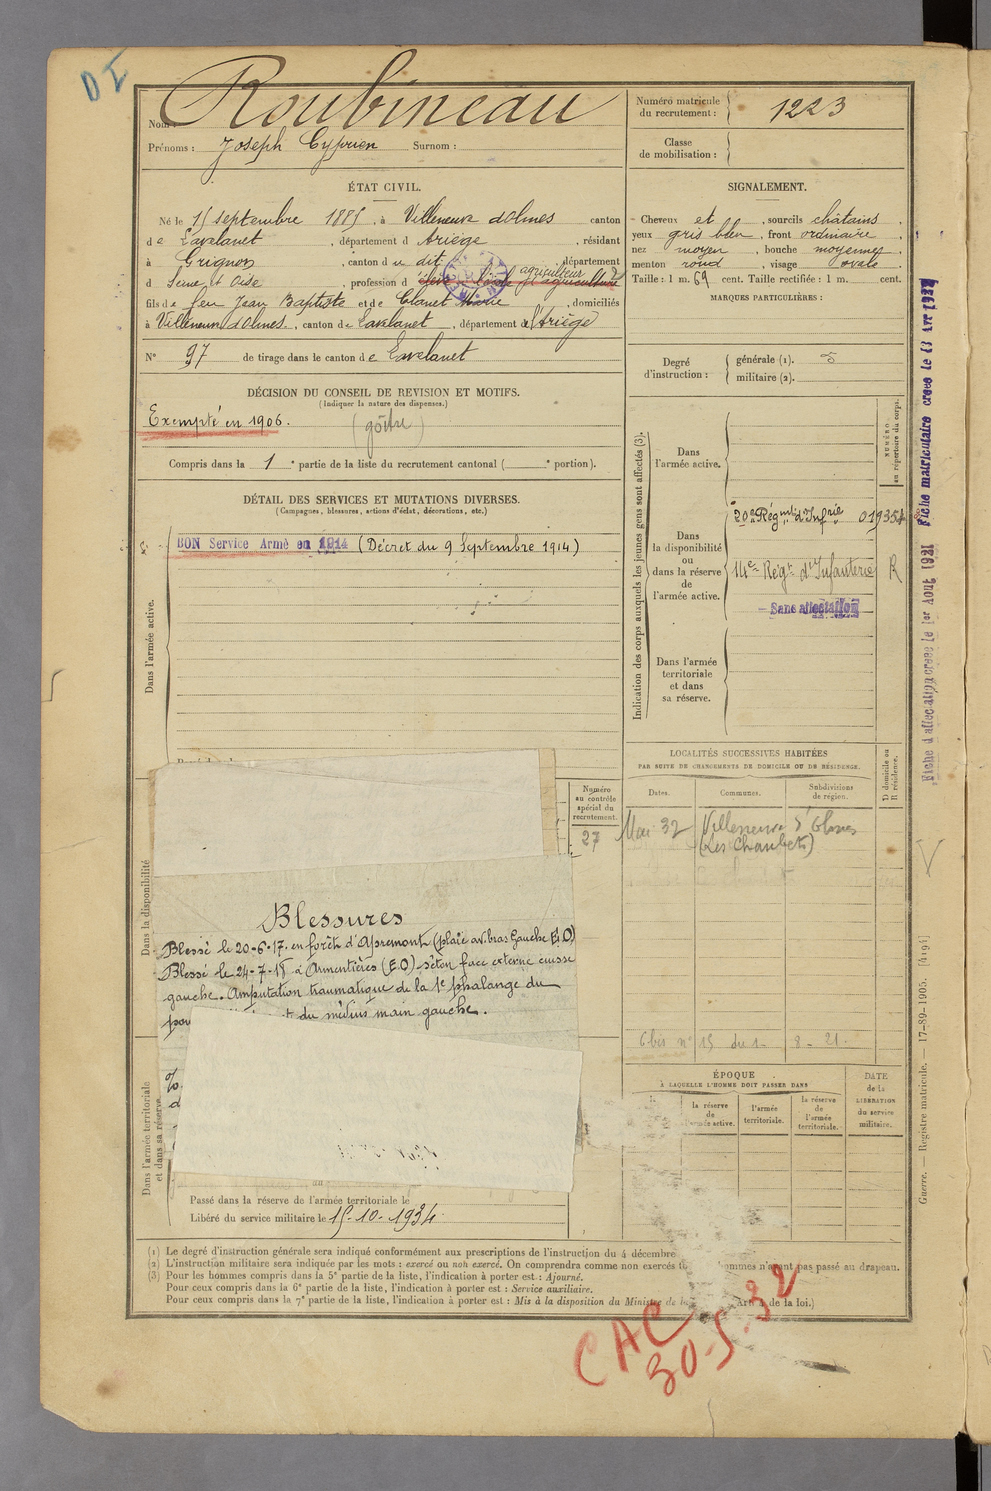 D I
Nom : Roubineau
Prénoms : Joseph Cyprien Surnom :
Numéro matricule du recrutement : 1223
Classe de mobilisation :
ÉTAT CIVIL.
Né le 15 septembre 1885, à Villeneuve d'Olmes canton
de Lavelanet, département d Ariège, résidant
à Grignon, canton d u dit, département
d Seine et Oise, profession d agriculteur
fils de feu Jean Baptiste et de Clanet Marie, domiciliés
à Villeneuve d'Olmes, canton de Lavelanet, département de l'Ariège
N° 97 de tirage dans le canton de Lavelanet
SIGNALEMENT.
Cheveux et, sourcils châtains,
yeux gris bleu, front ordinaire,
nez moyen, bouche moyenne,
menton rond, visage ovale.
Taille : 1 m. 69 cent. Taille rectifiée : 1 m. cent.
MARQUES PARTICULIÈRES :
Degré d'instruction : générale (1). 3
militaire (2).
DÉCISION DU CONSEIL DE REVISION ET MOTIFS.
(Indiquer la nature des dispenses.)
Exempté en 1906. (goître)
Compris dans la 1e partie de la liste du recrutement cantonal ( e portion).
DÉTAIL DES SERVICES ET MUTATIONS DIVERSES.
(Campagnes, blessures, actions d'éclat, décorations, etc.)
BON Service Armé en 1914 (Décret du 9 Septembre 1914)
Dans l'armée active.
Indication des corps auxquels les jeunes gens sont affectés (3).
NUMÉRO au répertoire du corps.
Dans l'armée active.
Dans la disponibilité ou dans la réserve de l'armée active.
20e Régiment d'Infrie 01935
14e Régt d'Infanterie R
Sans affectation
Dans l'armée territoriale et dans sa réserve.
Fiche d'affectation créée le 1er Août 1931 Fiche matriculaire créée le 13 Avr
LOCALITÉS SUCCESSIVES HABITÉES
PAR SUITE DE CHANGEMENTS DE DOMICILE OU DE RÉSIDENCE.
Dates. Communes. Subdivisions de région. D domicile ou R résidence.
Mai 32 Villeneuve d'Olmes
(Les Chaubets)
6 bis n° 15 du 1- 8- 21.
Numéro au contrôle spécial du recrutement.
27
Dans la disponibilité
Blessures
Blessé le 20-6-17. en forêt d'Apremont (plaie av. bras Gauche E.O)
Blessé le 24-7-18 à Armentières (E.O) séton face externe cuisse
gauche. Amputation traumatique de la 1e phalange du
pou t du médius main gauche.
Dans l'armée territoriale et dans sa réserve
Passé dans la réserve de l'armée territoriale le
Libéré du service militaire le 15-10-1934
ÉPOQUE
À LAQUELLE L'HOMME DOIT PASSER DANS
la réserve de l'armée active. l'armée territoriale. la réserve de l'armée territoriale.
DATE de la LIBÉRATION du service militaire.
Guerre. — Registre matricule. — 17-89-1905. [4194]
(1) Le degré d'instruction générale sera indiqué conformément aux prescriptions de l'instruction du 4 décembre
(2) L'instruction militaire sera indiquée par les mots : exercé ou non exercé. On comprendra comme non exercés hommes n'ayant pas passé au drapeau.
(3) Pour les hommes compris dans la 5e partie de la liste, l'indication à porter est : Ajourné.
Pour ceux compris dans la 6e partie de la liste, l'indication à porter est : Service auxiliaire.
Pour ceux compris dans la 7e partie de la liste, l'indication à porter est : Mis à la disposition du Ministre de la Art. 4 de la loi.)
CAC
30-5-32